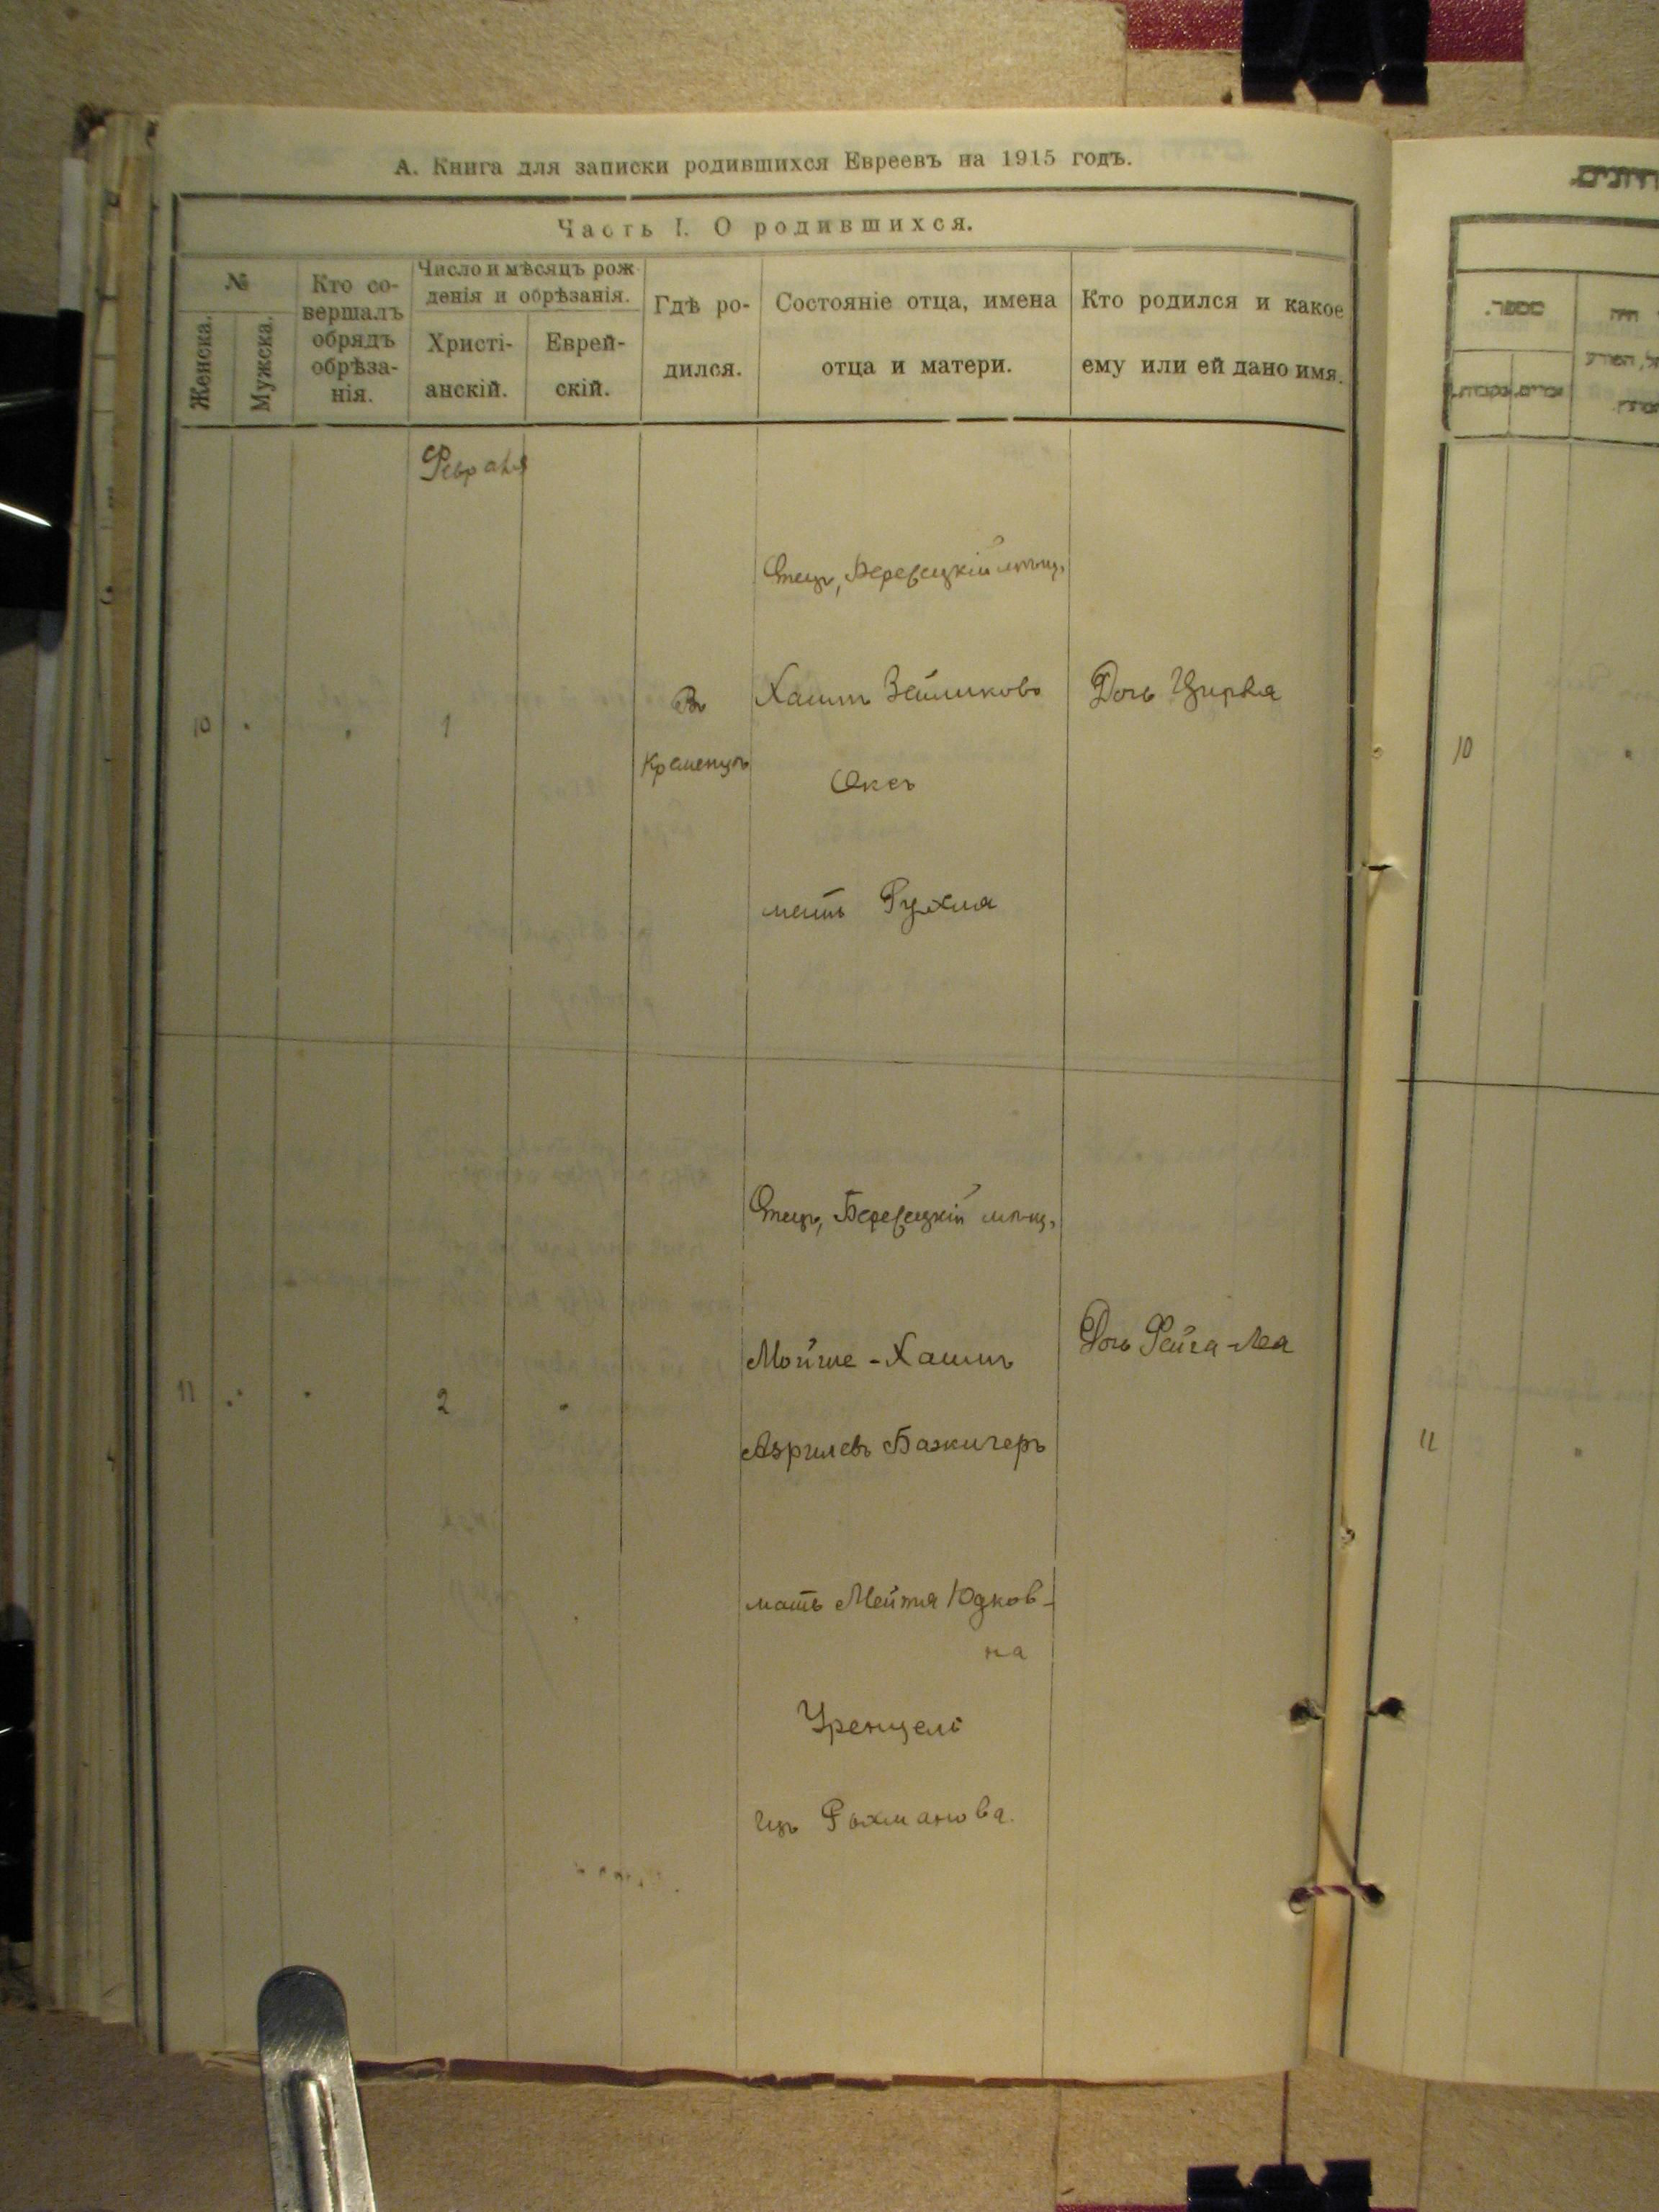 А. Книга для записки родившихся Евреевъ на 1915 годъ.
Часть I. О родившихся.
№
Женска.
Мужска.
Кто со-
вершалъ
обрядъ
обрѣза-
нія.
Число и мѣсяцъ рож
денія и обрѣзанія.
Христі-
анскій.
Еврей-
скій.
Гдѣ ро-
дился.
Состояніе отца, имена
отца и матери.
Кто родился и какое
ему или ей дано имя.
Февраля
10
1
Въ
Кременцѣ
Отецъ, Березецкій мѣщ.
Хаимъ Зейликовъ
Оксъ
мать Рухля
Дочь Цирля
11
2
Отецъ, Березецкій мѣщ.
Мойше-Хаимъ
Бажичеръ
мать Мейтя Юдков-
на
Уренцель
изъ Рохманова.
Дочь Фейга-Лея
מספר.
זכרים.
נקבות.
10
11